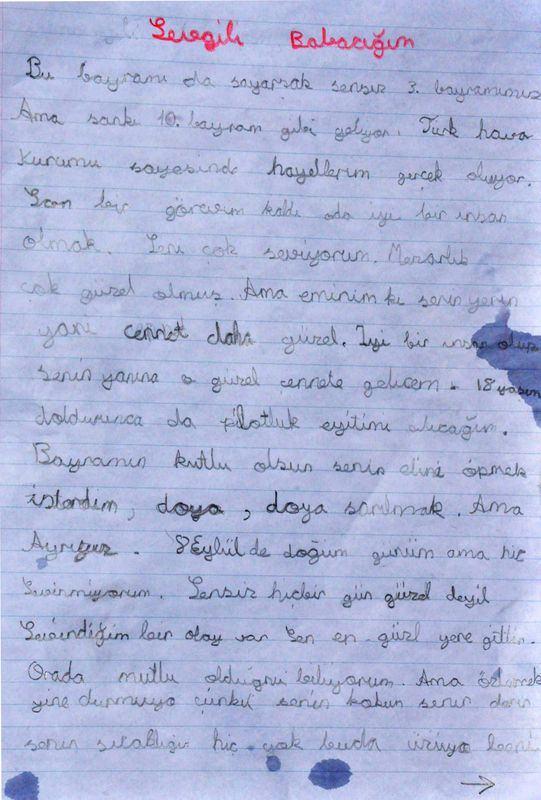 Sevgili Babacığım
Bu bayramı da sayarsak sensiz 3. bayramımız
Ama sanki 10. bayram gibi geliyor. Türk hava
Kurumu sayesinde hayellerim gerçek oluyor.
Son bir görevim kaldı oda iyi bir insan
olmak. Seni çok seviyorum. Mezarlık
çok güzel olmuş. Ama eminim ki senin yerin
yani cennet daha güzel. İyi bir insan olup
senin yanına o güzel cennete gelicem. 18 yaşım
doldurunca da pilotluk eyitimi alıcağım.
Bayramın kutlu olsun senin elini öpmek
isterdim, doya, doya sarılmak. Ama
Ayrıyız. 8 Eylül de doğum günüm ama hiç
Sevinmiyorum. Sensiz hiçbir gün güzel deyil
Sevindiğim bir olay var Sen en güzl yere gittin.
Orada mutlu olduğnu biliyorum. Ama özlemek
yine durmuyo çünkü senin kokun senin
senin sıcaklığın hiç yok buda üzüyo beni